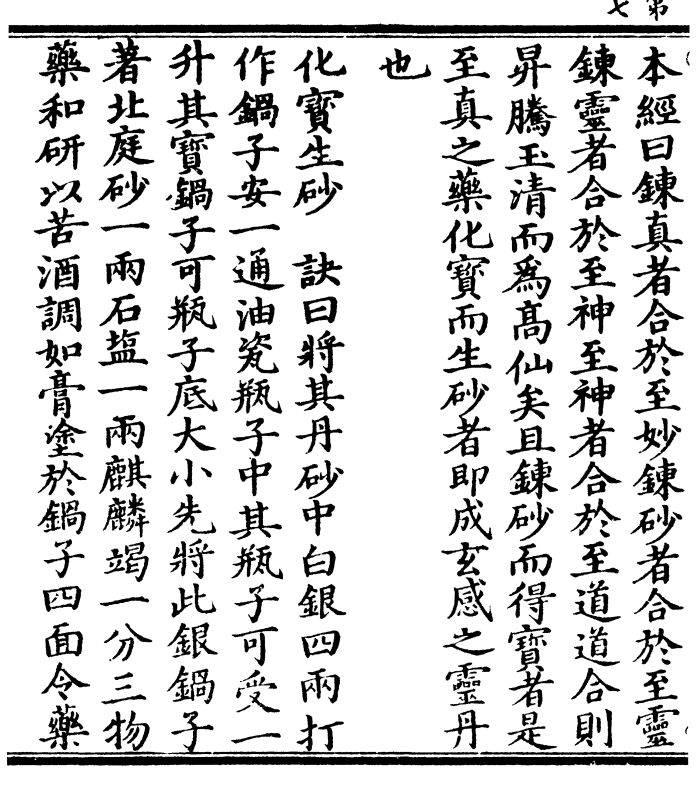 第七
本經曰鍊真者合於至妙鍊砂者合於至靈
鍊靈者合於至神至神者合於至道道合則
昇騰玉清而爲髙仙矣且鍊砂而得寶者是
至真之藥化寶而生砂者即成玄感之靈丹
也
化寶生砂　訣曰將其丹砂中白銀四兩打
作鍋子安一通油瓷瓶子中其瓶子可受一
升其寶鍋子可瓶子底大小先將此銀鍋子
著北庭砂一兩石塩一兩麒麟竭一分三物
藥和研以苦酒調如膏塗於鍋子四面令藥